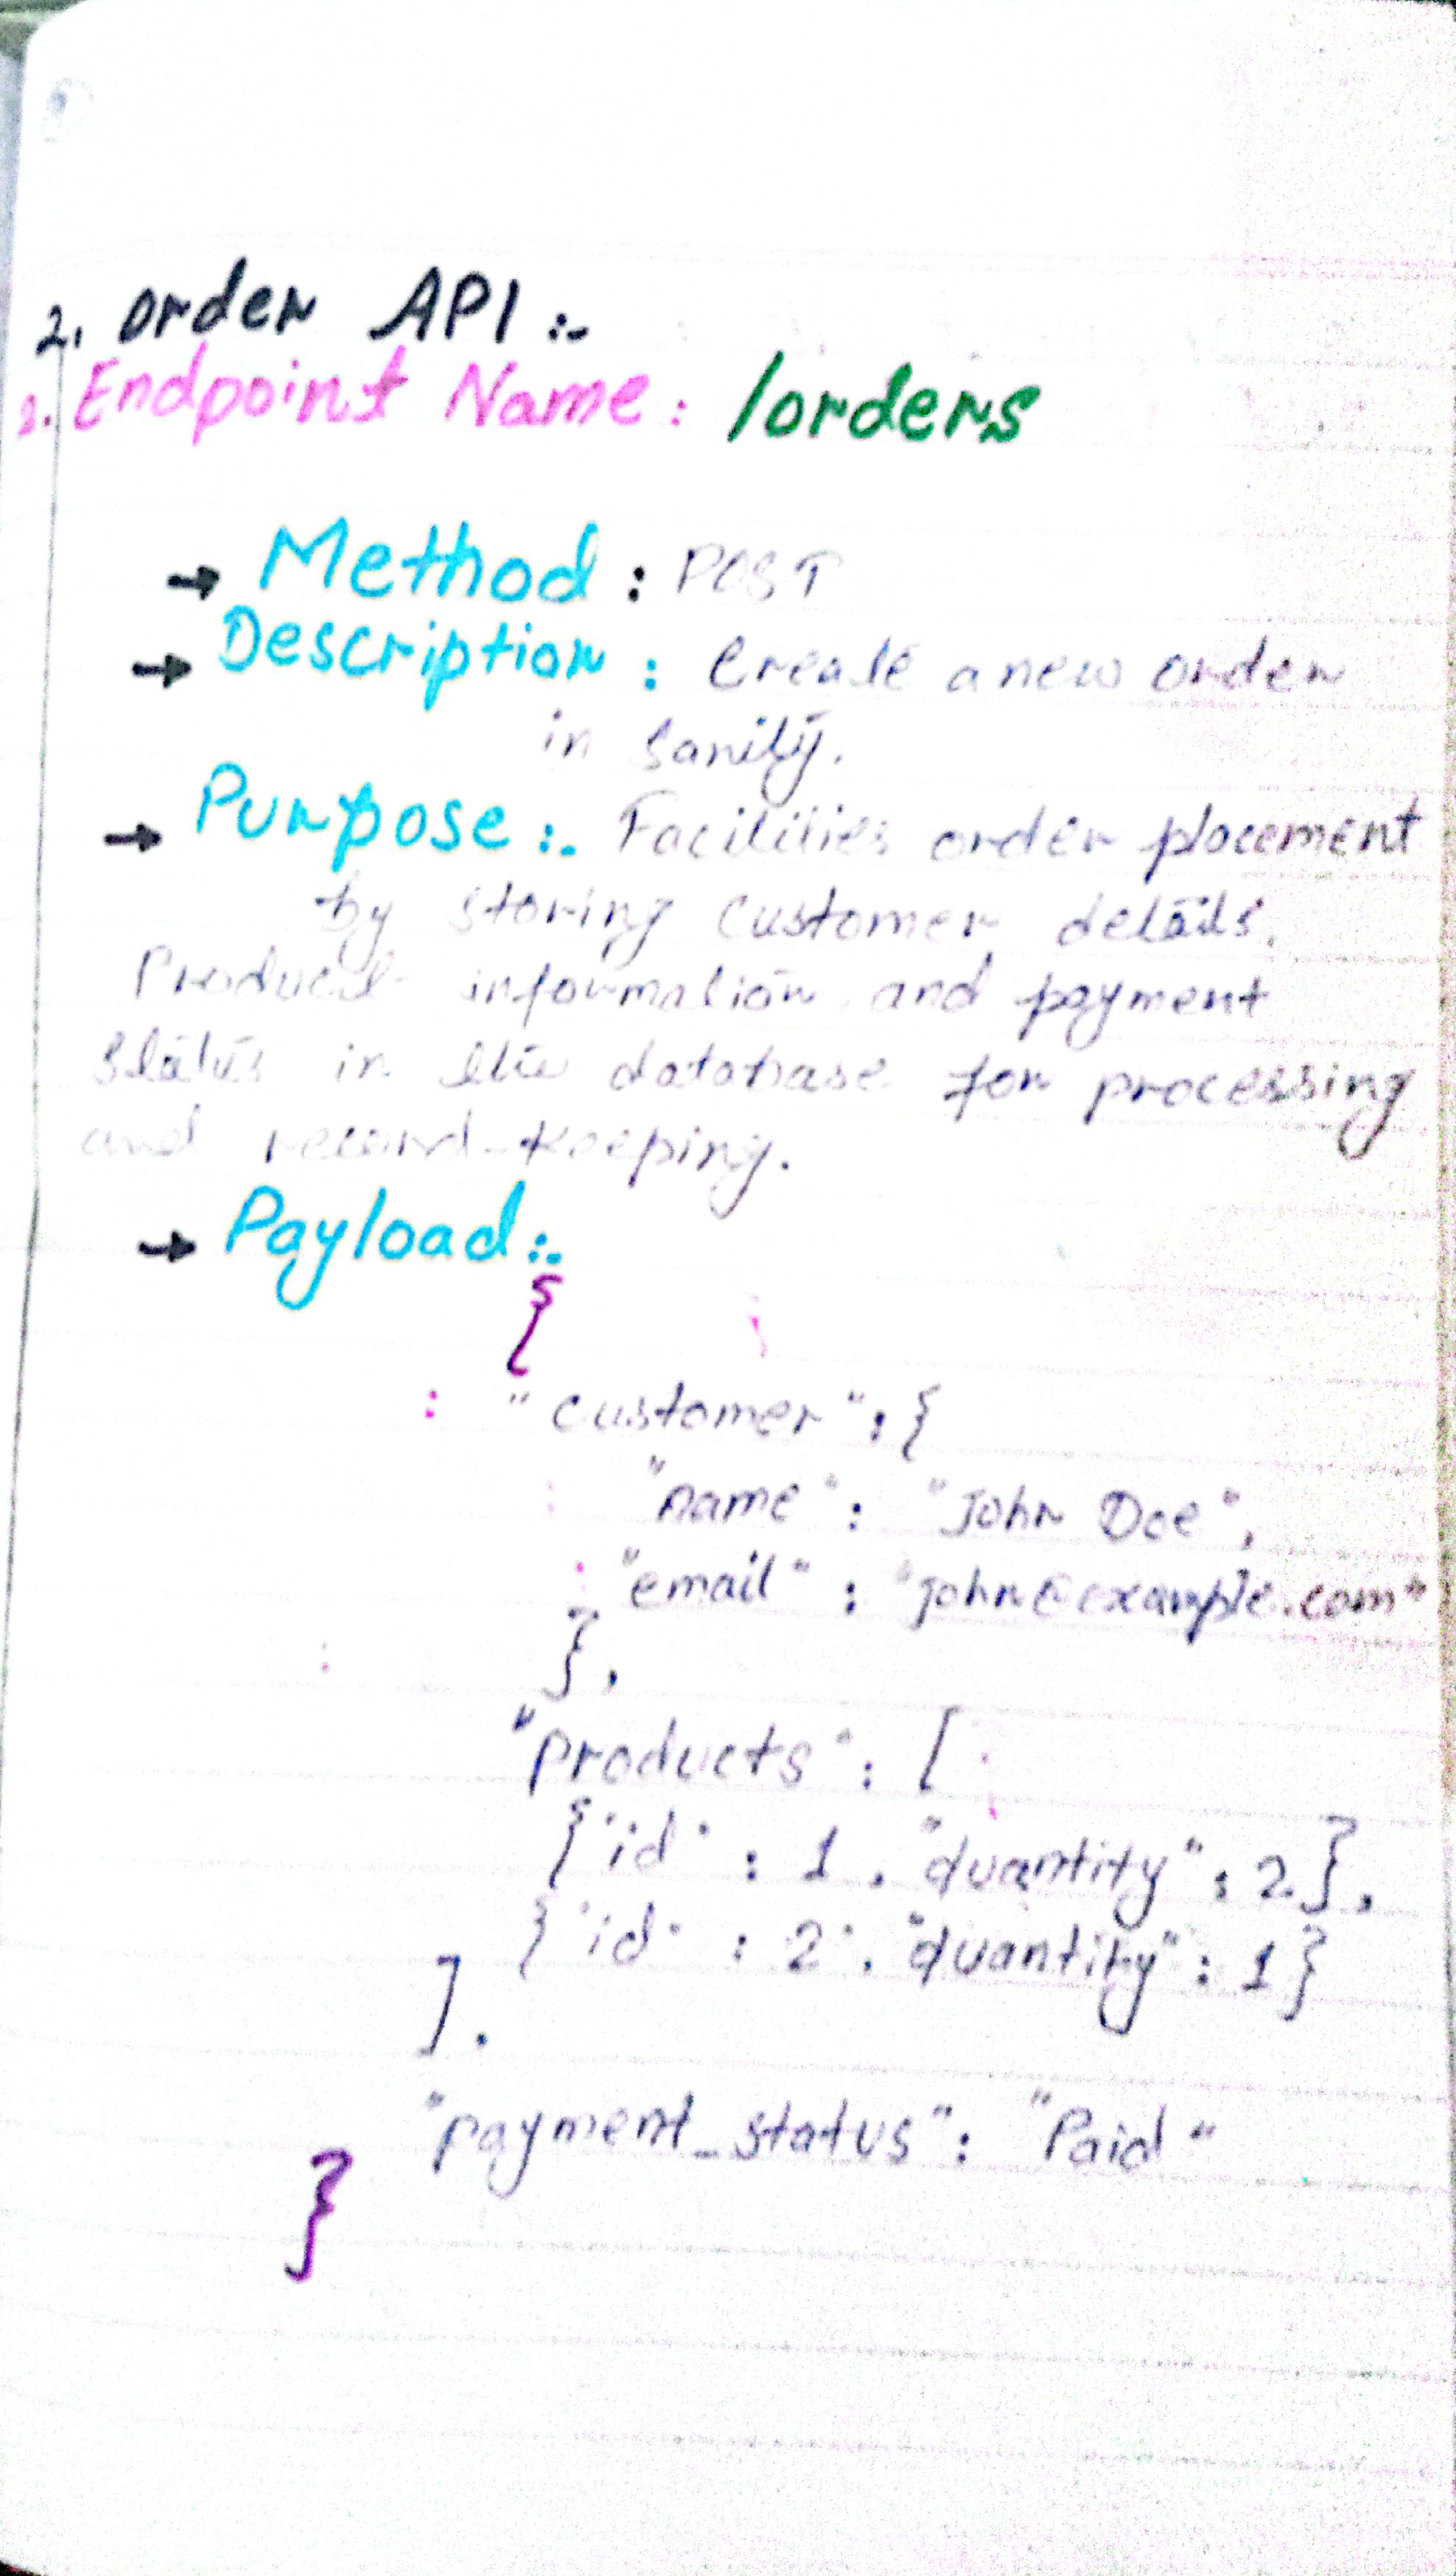 2. Order API :-
1. Endpoint Name: /orders
→ Method : POST
→ Description : Create a new order
in Sanity.
→ Purpose :- Facilities order placement
by storing customer details,
Product information and payment
status in the database for processing
and record-keeping.
→ Payload :-
{
"customer" : {
"name" : "John Doe",
"email" : "john@example.com"
},
"products" : [
{"id" : 1, "quantity" : 2},
{"id" : 2, "quantity" : 1}
],
"payment_status" : "Paid"
}